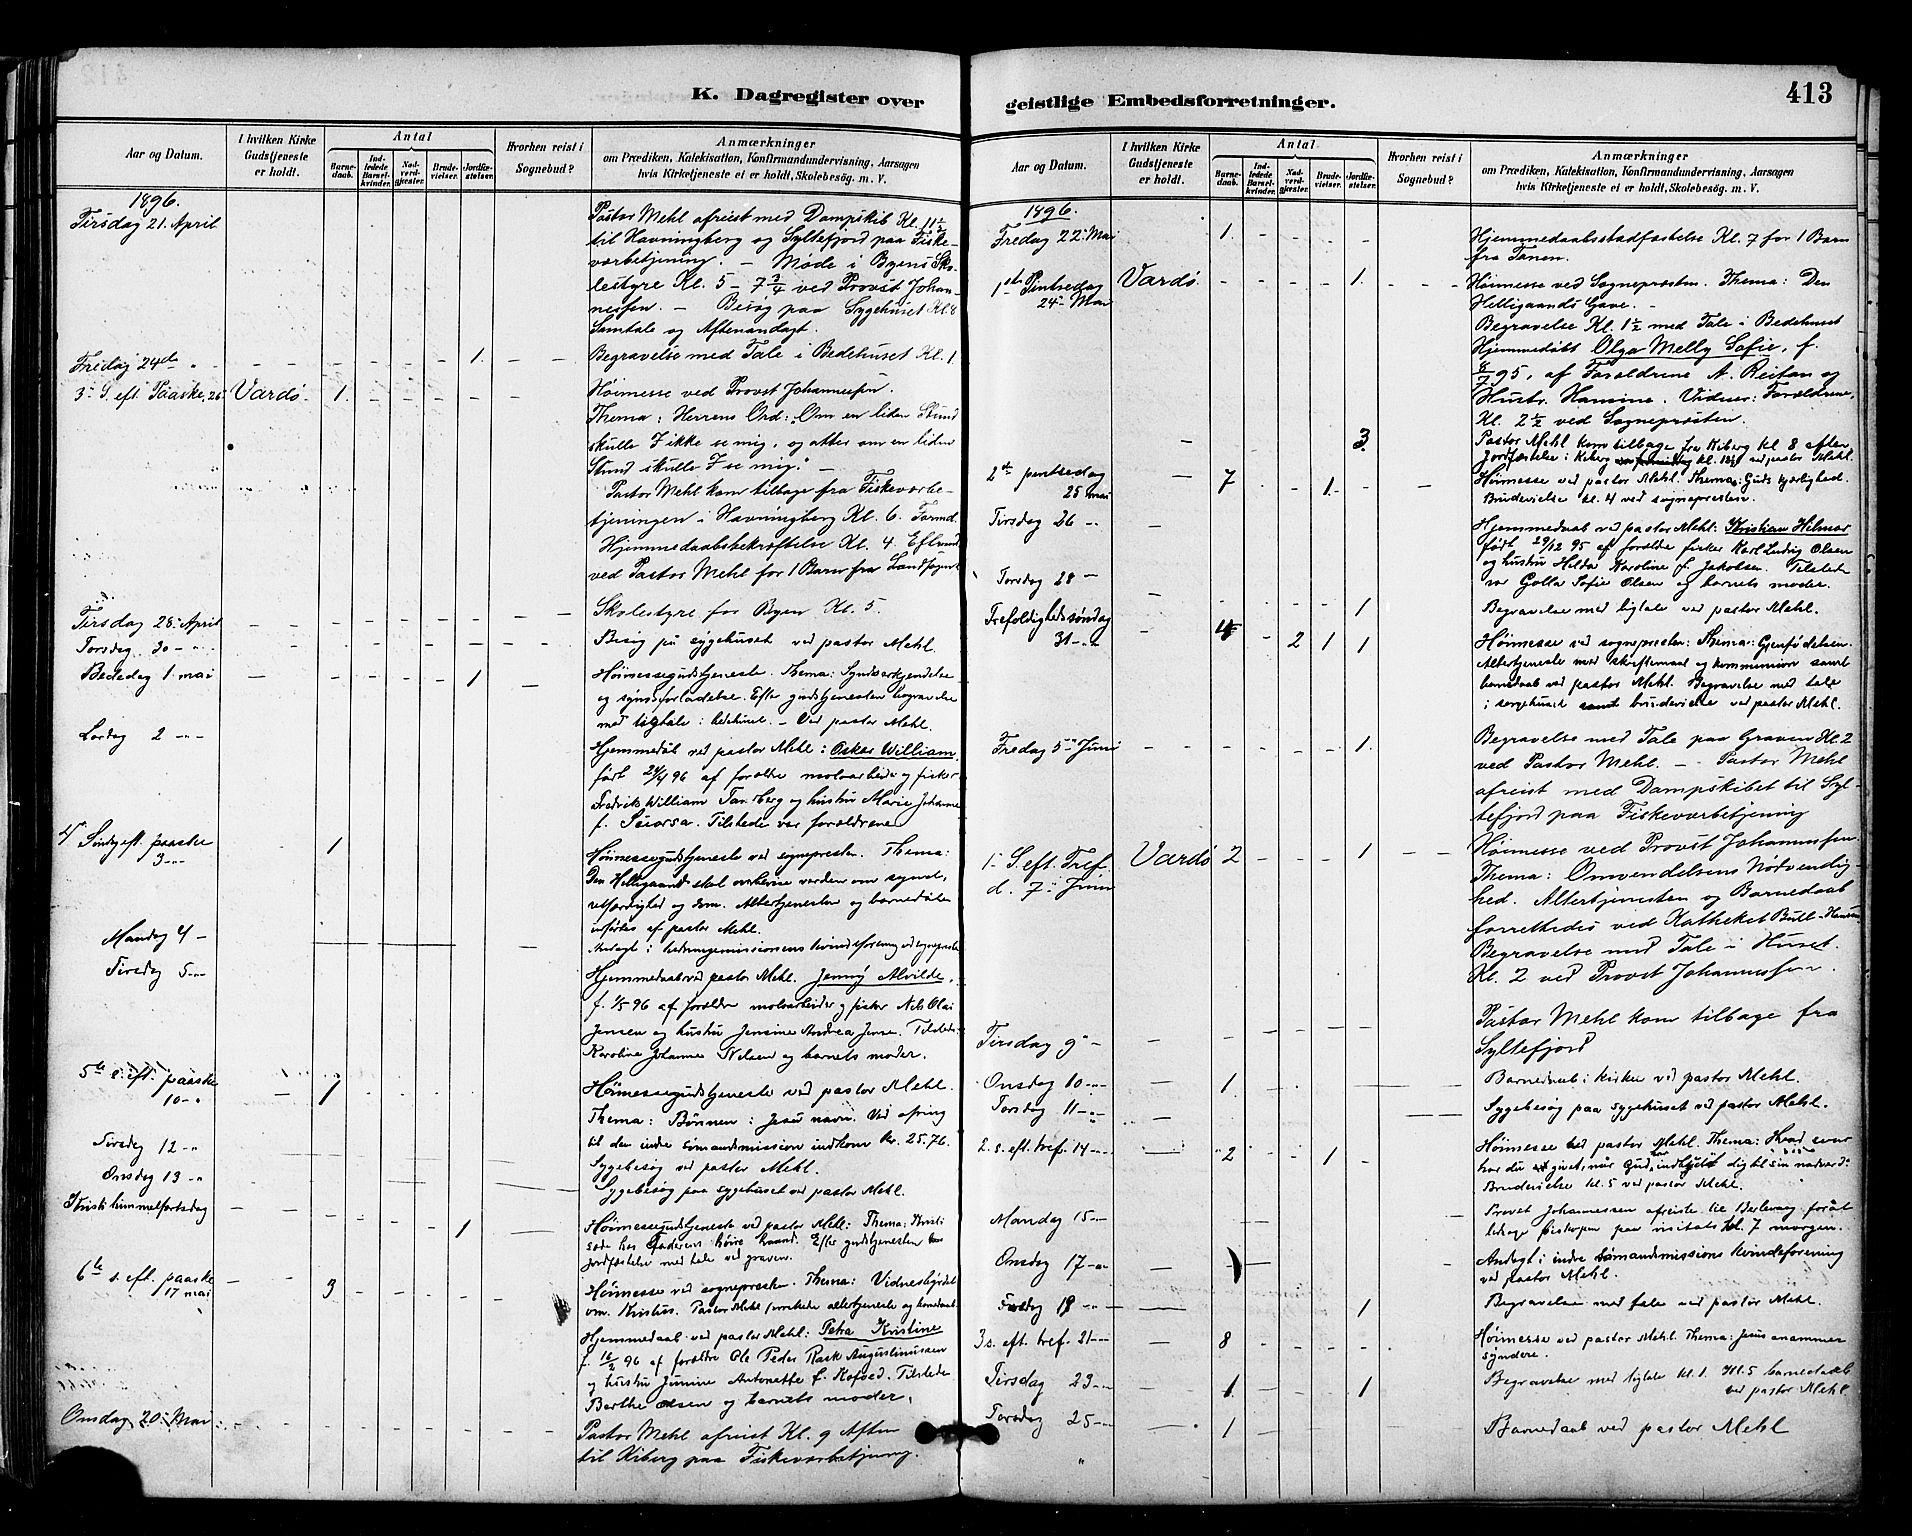 K. Dagregister over
Aar og Datum.
I hvilken Kirke
Gudstjeneste
er holdt.
Antal
Barne-
daab.
Ind-
ledede
Barsel-
kvinder.
Nad-
verd-
gjester.
Brude-
vielser.
Jordfæ-
stelser.
Hvorhen reist i
Sognebud?
Anmærkninger
om Prædiken, Katekisation, Konfirmandundervisning, Aarsagen
hvis Kirketjeneste ei er holdt, Skolebesøg. m. V.
1896.
Tirsdag 21. April
Pastor Mehl afreist med Dampskib Kl. 11 1/2
til Havningberg og Syltefjord paa Fiske-
værbetjening. — Møde i Byens Sko-
lestyre Kl. 5 – 7 3/4 ved Provst Johan-
nessen. — Besøg paa Sygehuset Kl. 8
Samtale og Aftenandagt.
Fredag 24de " 1. Begravelse med Tale i Bedehuset Kl. 1
3. S. eft. Paaske, 26 Vardø 1. Høimesse ved Provst Johannessen.
Thema: Herrens Ord: „Om en liden Stund
skulle I ikke se mig, og atter om en liden
Stund skulle I se mig." —
Pastor Mehl kom tilbage fra Fiskeværbe-
tjeningen i Havningberg Kl. 6. Formd.
Hjemmedaabsbekræftelse Kl. 4 Eftmd
ved Pastor Mehl for 1 Barn fra Landsognet
Tirsdag 28. April Skolestyre for Byen Kl. 5.
Torsdag 30 Besøg på sygehuset ved pastor Mehl.
Bededag 1. mai 1 Høimessegudstjeneste. Thema: Syndserkjendelse
og syndsforladelse. Efter gudstjenesten begravelse
med ligtale i bedehuset. – Ved pastor Mehl.
Lørdag 2 Hjemmedøbt ved pastor Mehl: Oskar William,
født 24/4 96 af forældre moloarbeider og fisker
Fredrik William Tansberg og hustru Marie Johanne
f. Tilstede var forældrene
4. Søndag eft. paaske
3 1 Høimessegudstjeneste ved sognepresten. Thema:
Den Helligaand skal overbevise verden om synd,
retfærdighed og dom. Altertjenesten og barnedåben
udførtes af pastor Mehl.
Mandag 4 Andagt i kvindeforening ved sognepresten
Tirsdag 5 Hjemmedaab ved pastor Mehl. Jenny Alvilde,
f. 1/5 96 af forældre moloarbeider og fisker Nels Olai
Jensen og hustru Jensine Andrea Jense. Tilstede:
Karoline Johanne Nilsen og barnets moder.
5te s. eft. paaske
10 1 Høimessegudstjeneste ved pastor Mehl.
Thema: Bønnen i Jesu navn. Ved ofring
til den indre sømandsmission indkom kr. 25.76.
Tirsdag 12 Sygebesøg ved pastor Mehl.
Onsdag 13 Sygebesøg paa sygehuset ved pastor Mehl.
Kristi himmelfartsdag 1 Høimessegudstjeneste ved pastor Mehl: Thema: Kristi
sæde hos Faderens høire haand. Efter gudstjenesten
jordfæstelse med tale ved graven.
6te s. eft. paaske
17 mai 3 Høimesse ved sognepresten. Thema: Vidnesbyrdet
om Kristus. Pastor Mehl forrettede altertjeneste og barnedaab.
Hjemmedaab ved pastor Mehl: Petra Kristine
f. 16/2 96 af forældre Ole Peder Rask Augustinussen
og hustru Junine Antonette f. Kofoed. Tilstede
Berthe Olsen og barnets moder.
Onsdag 20. Mai Pastor Mehl afreist Kl. 9 Aften
til Kiberg paa Fiskeværbetjening.
geistlige Embedsforretninger.
413
Aar og Datum.
I hvilken Kirke
Gudstjeneste
er holdt.
Antal
Barne-
daab.
Ind-
ledede
Barsel-
kvinder.
Nad-
verd-
gjester.
Brude-
vielser.
Jordfæ-
stelser.
Hvorhen reist i
Sognebud?
Anmærkninger
om Prædiken, Katekisation, Konfirmandundervisning, Aarsagen
hvis Kirketjeneste ei er holdt, Skolebesøg. m. V.
1896.
Fredag 22. Mai 1. Hjemmedaabsstadfæstelse Kl. 7 for 1 Barn
fra Tanen.
1ste Pintsedag Vardø 1. Høimesse ved Sognepresten. Thema: Den
24. Mai Helligaands Gave. —
Begravelse Kl. 1 1/2 med Tale i Bedehuset
Hjemmedøbt Olga Melly Sofie, f.
8/7 95, af Forældrene A. Reitan og
Hustr. Hansine. Vidner: Forældrene,
Kl. 2 1/2 ved Sognepresten.
3 Pastor Mehl kom tilbage fra Kiberg kl 8 aften
Jordfæstelse i Kiberg ved pastor Mehl.
2den pintsedag
25 mai 7 1 Høimesse ved pastor Mehl. Thema: Guds kjærlighed.
Brudevielse kl. 4 ved sognepresten.
Tirsdag 26 Hjemmedaab ved pastor Mehl: Kristian Helmer
født 29/12 95 af forældre fisker Karl Ludvig Olsen
og hustru Hilda Karoline f. Jakobsen. Tilstede
var Golla Sofie Olsen og barnets moder.
Torsdag 28 1 Begravelse med ligtale ved pastor Mehl.
Trefoldighedssøndag
31 4 2 1 1 Høimesse ved sognepresten: Thema: Gjenfødelsen.
Altertjeneste med skriftemaal og kommunion samt
barnedaab ved pastor Mehl. Begravelse med tale
i sørgehuset samt brudevielse ved pastor Mehl.
Fredag 5. Juni 1. Begravelse med Tale paa Graven Kl. 2
ved Pastor Mehl. — Pastor Mehl
afreist med Dampskibet til Syl-
tefjord paa Fiskeværbetjening
1. S. eft. Tref. Vardø 2 1 Høimesse ved Provst Johannessen
d. 7. Juni Thema: Omvendelsens Nødvendig
hed. Altertjenesten og Barnedaab
forrettedes ved Katheket Bull-Hansen
Begravelse med Tale i Huset.
Kl. 2 ved Provst Johannessen.
Tirsdag 9 Pastor Mehl kom tilbage fra
Syltefjord
Onsdag 10 1 Barnedaab i kirken ved pastor Mehl.
Torsdag 11 Sygebesøg paa sygehuset ved pastor Mehl.
2. s. eft. tref. 14 2 1 Høimesse ved pastor Mehl. Thema: Hvad svar
har du givet, når Gud har indbudt dig til sin nadverd?
Brudevielse kl. 5 ved pastor Mehl.
Mandag 15 Provst Johannessen afreiste til Berlevaag for at
ledsage Biskopen paa visitats kl. 7 morgen.
Onsdag 17 Andagt i indre sømandsmissions kvindeforening
ved pastor Mehl.
19 1 Begravelse med tale ved pastor Mehl.
3 s. eft. tref. 21 8 Høimesse ved pastor Mehl. Thema: Jesus anammer
syndere.
Tirsdag 23 1 1 Begravelse med ligtale kl. 1. Kl. 5 barnedaab
ved pastor Mehl
Torsdag 25 1 Barnedaab ved pastor Mehl